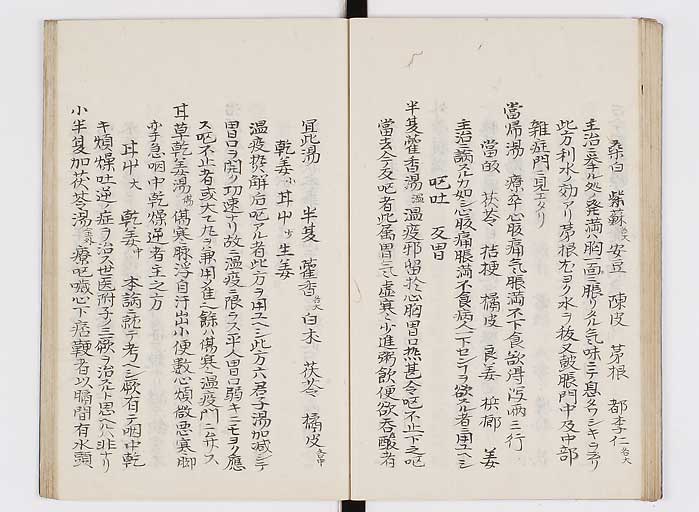 桑白 紫蘇各大 安豆 陳皮 茅根 郁李仁各大
主治ニ挙ル処ノ発満ハ胸一面ニ脹リタル気味ニテ息クワシキラアリ
此方利水ノ効アリ茅根尤ヨク水ヲ抜又鼓脹門中及中部
雑症門ニ見エタリ
當帰湯 療卒心腹痛気脹満不下食欲得瀉両三行
當皈 茯苓 桔梗 橘皮 良姜 梹榔 姜
主治ニ病スル力如シ心腹痛脹満不食病人一下センヿヲ欲スル者ニ用ユヘシ
呕吐 反胃
半夏藿香湯 温疫邪留於心胸胃口熱甚令呕不止下之呕
當去今反呕者此属胃気虚寒少進粥飲便欲呑酸者
宜此湯 半夏 藿香各大 白朮 茯苓 橘皮各中
乾姜小 甘中 生姜
温疫損解后呕アル者此方ヲ用ユヘシ此方六君子湯加減シテ
胃口ヲ開ク功速ナリ故ニ温疫ニ限ラス平人胃口弱キニモヨク應
ス呕不止者或大七九ヲ兼用ス其餘ハ傷寒温疫門ニ弁ス
甘草乾姜湯 傷寒脉浮自汗出小便数心煩微悪寒脚
攣急咽中乾燥逆者主之方
甘中大 乾姜中 本論ニ就テ考ヘシ厥有テ咽中乾
キ煩燥吐逆ノ症ヲ治ス世医附子ハ三厥ヲ治スルト思ヘルハ非ナリ
小半夏加茯苓湯 療呕噦心下痞鞕者以膈間有水頭